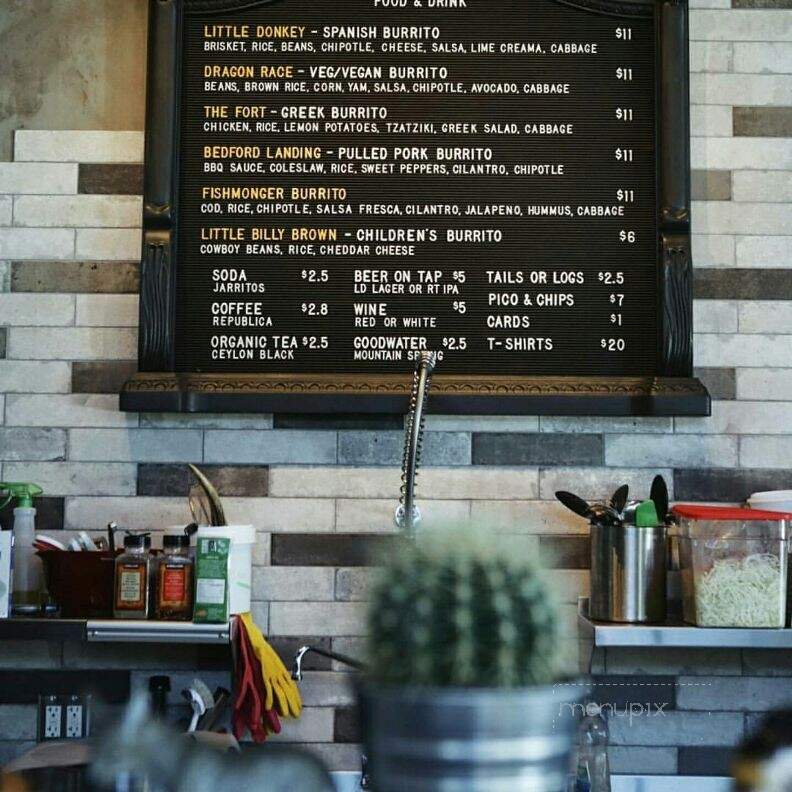 FOOD & DRINK
LITTLE DONKEY - SPANISH BURRITO $11
BRISKET, RICE, BEANS, CHIPOTLE, CHEESE, SALSA, LIME CREAMA, CABBAGE
DRAGON RACE - VEG/VEGAN BURRITO $11
BEANS, BROWN RICE, CORN, YAM, SALSA, CHIPOTLE, AVOCADO, CABBAGE
THE FORT - GREEK BURRITO $11
CHICKEN, RICE, LEMON POTATOES, TZATZIKI, GREEK SALAD, CABBAGE
BEDFORD LANDING - PULLED PORK BURRITO $11
BBQ SAUCE, COLESLAW, RICE, SWEET PEPPERS, CILANTRO, CHIPOTLE
FISHMONGER BURRITO $11
COD, RICE, CHIPOTLE, SALSA FRESCA, CILANTRO, JALAPENO, HUMMUS, CABBAGE
LITTLE BILLY BROWN - CHILDREN'S BURRITO $6
COWBOY BEANS, RICE, CHEDDAR CHEESE
SODA $2.5
JARRITOS
COFFEE $2.8
REPUBLICA
ORGANIC TEA $2.5
CEYLON BLACK
BEER ON TAP $5
LD LAGER OR RT IPA
WINE $5
RED OR WHITE
GOODWATER $2.5
MOUNTAIN SPRING
TAILS OR LOGS $2.5
PICO & CHIPS $7
CARDS $1
T-SHIRTS $20
menupix